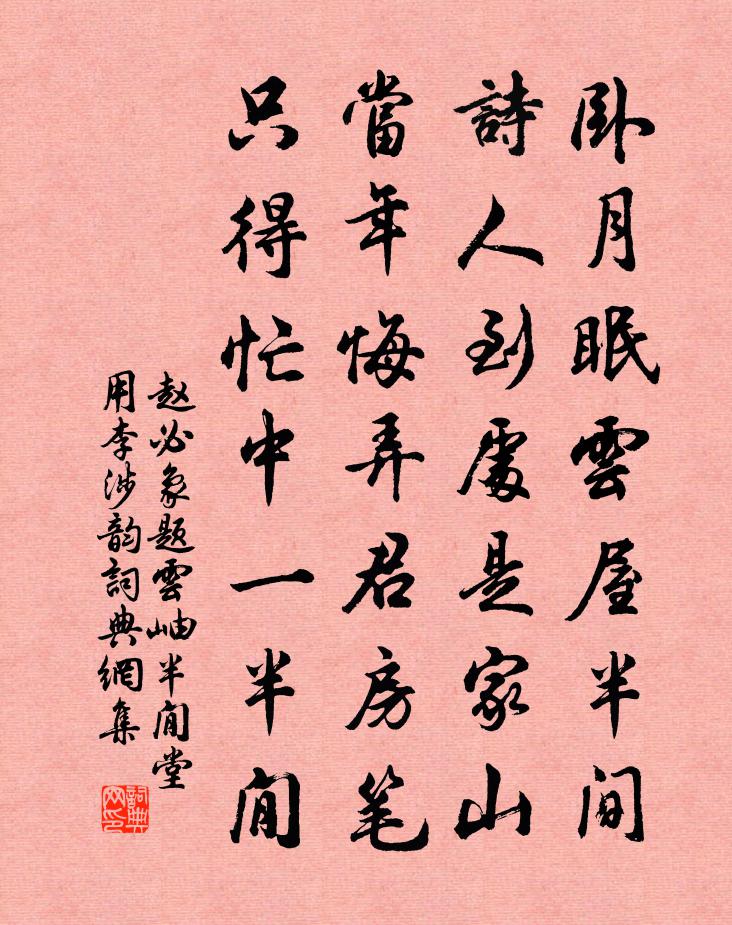 卧月眠雲屋半间
詩人到處是家山
當年悔弄君房笔
只得忙中一半閒
赵必象题雲岫半閒堂
用李涉韵詞典網集
詞典
网印